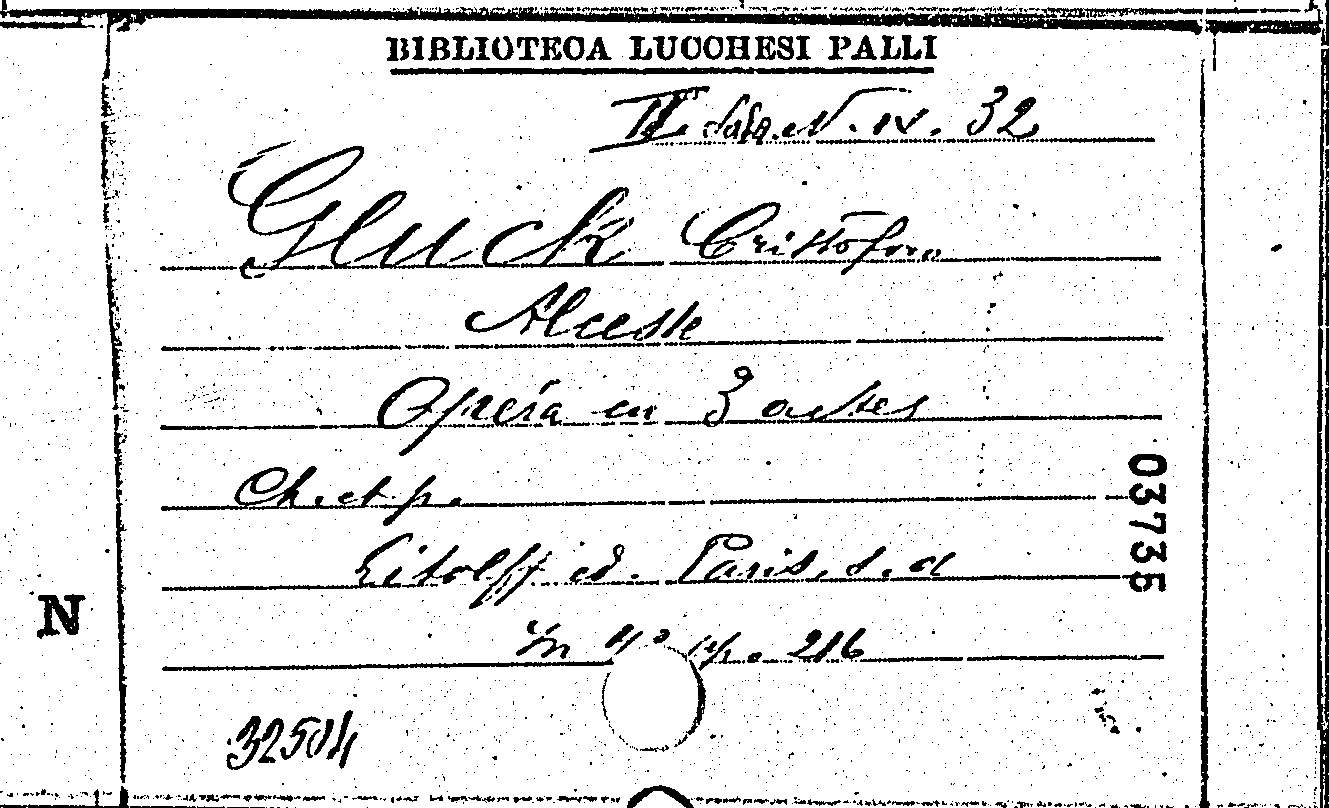 BIBLIOTECA LUCCHESI PALLI
II Sala. N. IV. 32
Gluck Cristoforo
Alceste
Opéra en 3 actes
Ch. et p.
Litolff ed. Paris. s. d
In 4° pp. 216
32504
03735
N